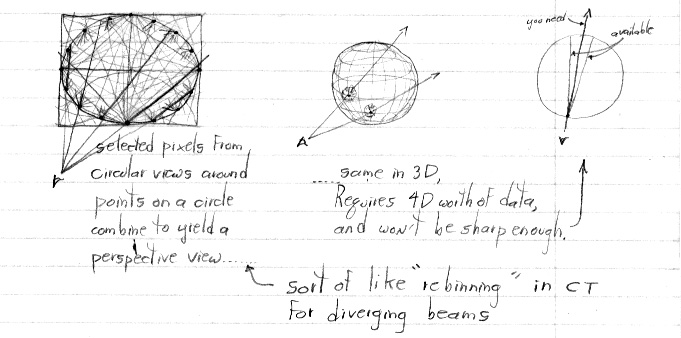 you need
available
selected pixels from
circular views around
points on a circle
combine to yield a
perspective view......
..... same in 3D,
Requires 4D worth of data,
and won't be sharp enough.
sort of like "rebinning" in CT
for diverging beams